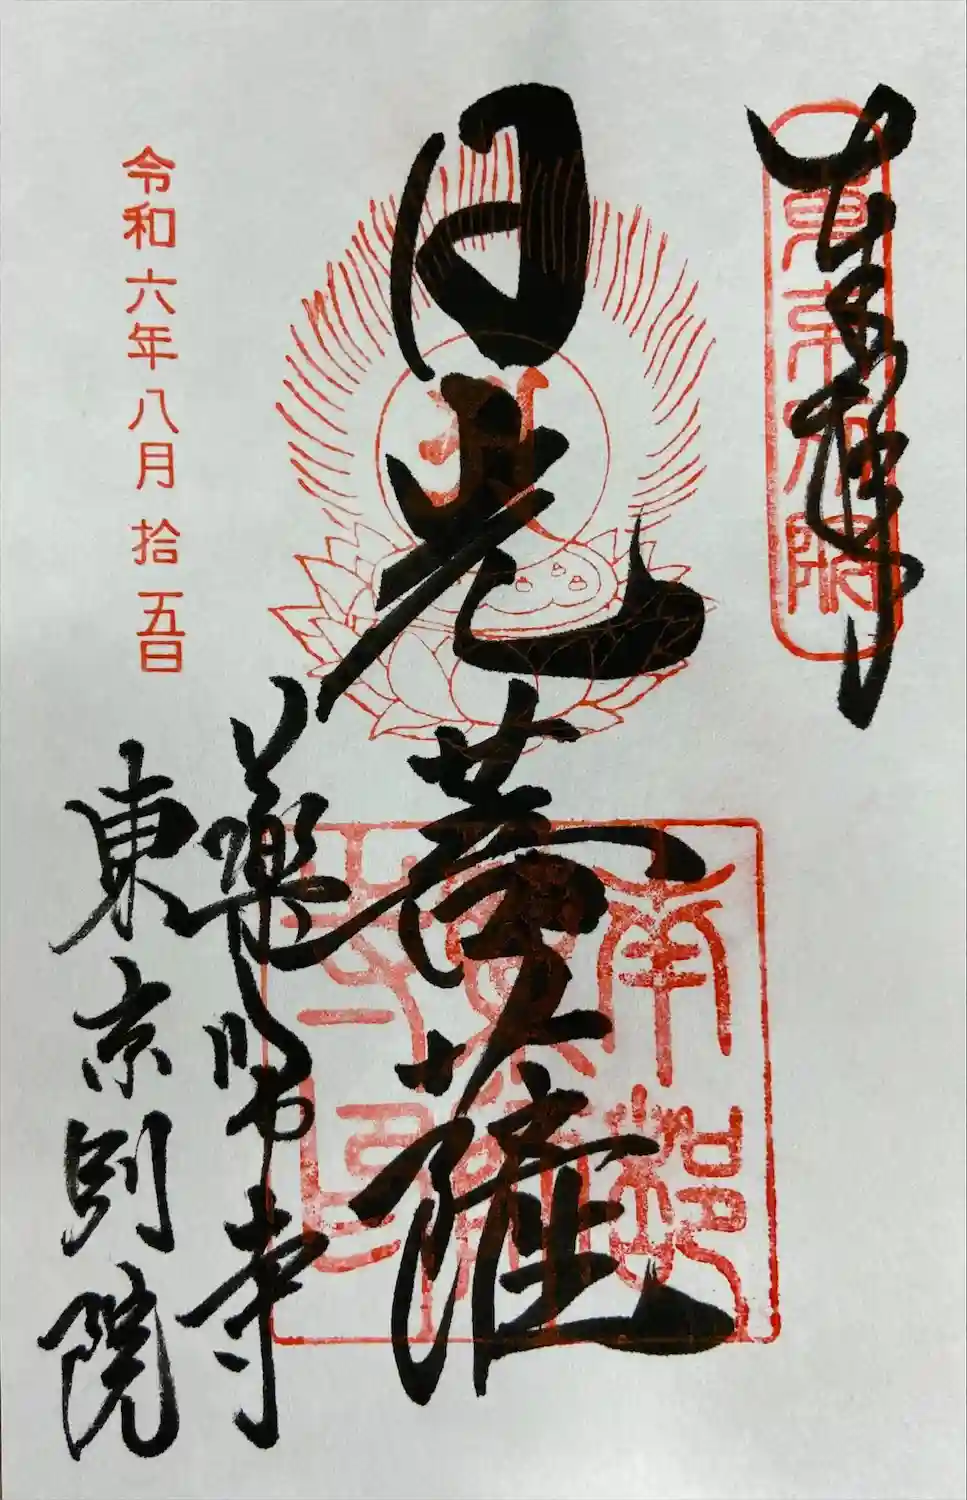 奉拝
東京別院
日光菩薩
南都
薬師寺
東京別院
令和六年八月拾五日